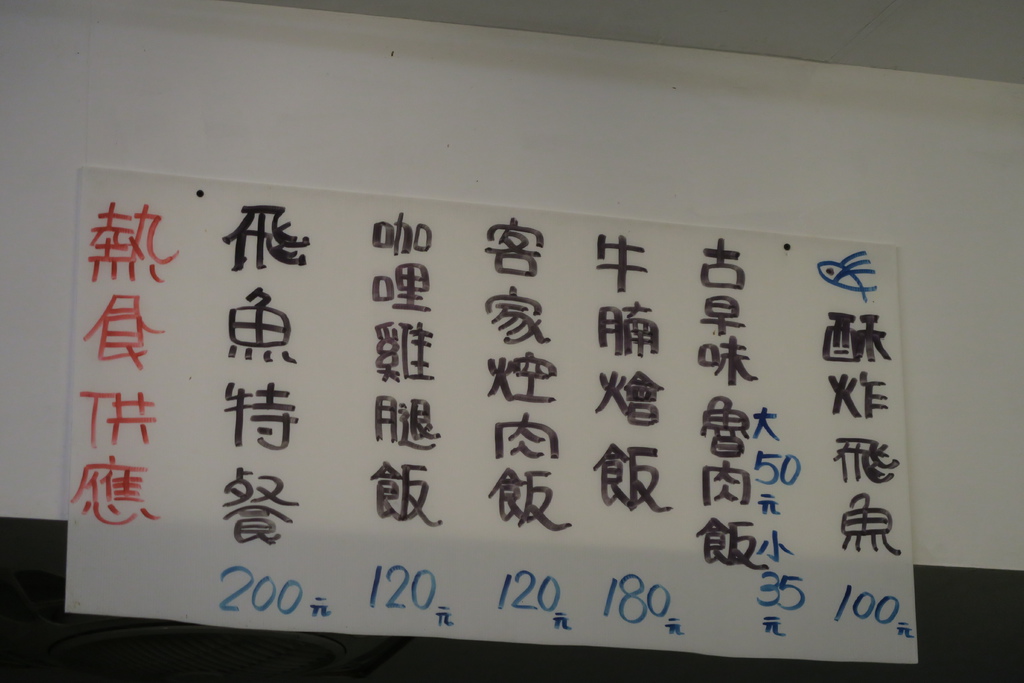 熱食供應
飛魚特餐 200元
咖哩雞腿飯 120元
客家焢肉飯 120元
牛腩燴飯 180元
古早味魯肉飯 大50元 小35元
酥炸飛魚 100元